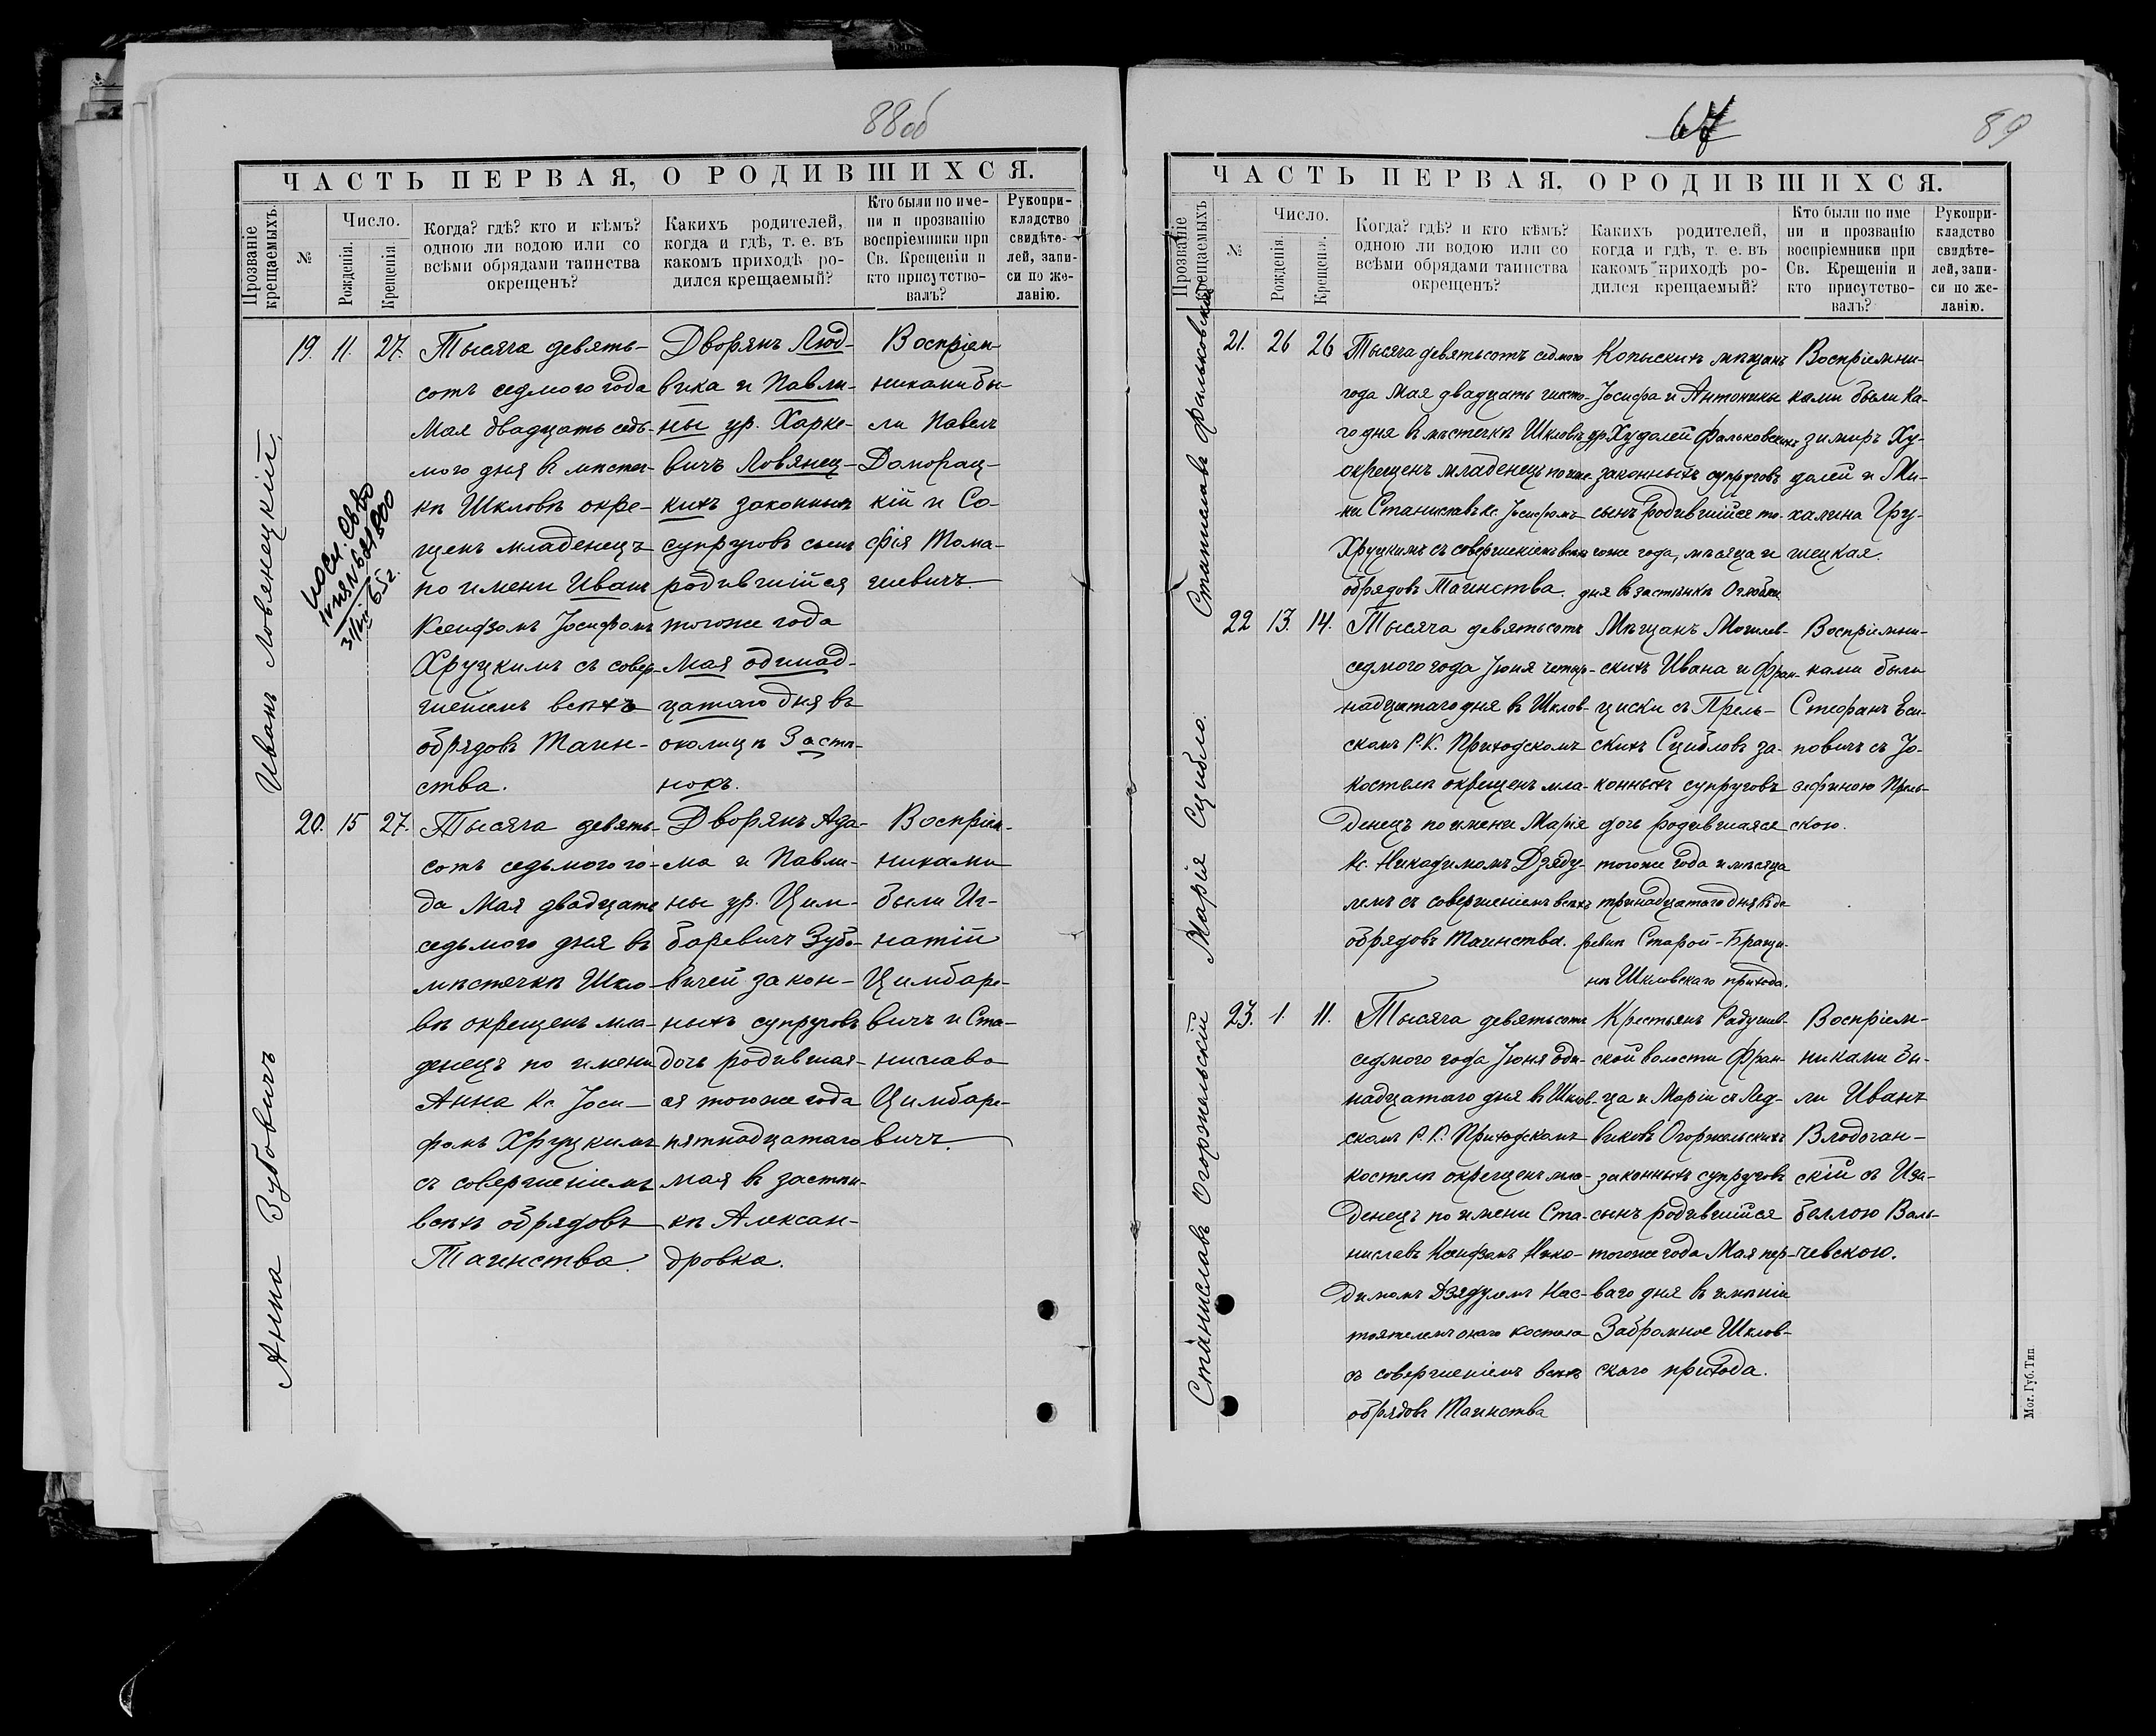 88об
ЧАСТЬ ПЕРВАЯ, О РОДИВШИХСЯ.
Прозваніе крещаемыхъ.
№
Число.
Рожденія.
Крещенія.
Когда? гдѣ? кто и кѣмъ?
одною ли водою или со
всѣми обрядами таинства
окрещенъ?
Какихъ родителей,
когда и гдѣ, т. е. въ
какомъ приходѣ ро-
дился крещаемый?
Кто были по име-
ни и прозванію
воспріемники при
Св. Крещеніи и
кто присутство-
валъ?
Рукопри-
кладство
свидѣте-
лей, запи-
си по же-
ланію.
Иванъ Ловенецкій
19. 11. 27.
31/VIII 65 г.
Тысяча девять-
сотъ седмого года
Мая двадцать седь-
мого дня въ мѣстеч-
кѣ Шкловѣ окре-
щенъ младенецъ
по имени Иванъ
Ксендзомъ Іосифомъ
Хруцкимъ съ совер-
шеніемъ всѣхъ
обрядовъ Таин-
ства.
Дворянъ Люд-
вика и Павли-
ны ур. Харке-
вичъ Ловянец-
кихъ законныхъ
супруговъ сынъ
родившійся
тогоже года
Мая одинад-
цатаго дня въ
околицѣ Застѣ-
нокъ.
Воспріем-
никами бы-
ли Павелъ
Доморац-
кій и Со-
фія Тома-
шевичъ
Анна Зубовичъ
20. 15 27.
Тысяча девять-
сотъ седьмого го-
да Мая двадцать
седьмого дня въ
мѣстечкѣ Шкло-
вѣ окрещенъ мла-
денецъ по имени
Анна Кс. Іоси-
фомъ Хруцкимъ
съ совершеніемъ
всѣхъ обрядовъ
Таинства.
Дворянъ Ада-
ма и Павли-
ны ур. Цим-
баревичъ Зубо-
вичей закон-
ныхъ супруговъ
дочь родившая-
ся тогоже года
пятнадцатаго
мая въ застѣн-
кѣ Алексан-
дровка.
Воспріем-
никами
были Иг-
натій
Цимбаре-
вичъ и Ста-
нислава
Цимбаре-
вичъ
67
89
ЧАСТЬ ПЕРВАЯ. О РОДИВШИХСЯ.
Прозваніе крещаемыхъ
№
Число.
Рожденія.
Крещенія.
Когда? гдѣ? и кто кѣмъ?
одною ли водою или со
всѣми обрядами таинства
окрещенъ?
Какихъ родителей,
когда и гдѣ, т. е. въ
какомъ приходѣ ро-
дился крещаемый?
Кто были по име
ни и прозванію
воспріемники при
Св. Крещеніи и
кто присутство-
валъ?
Рукопри-
кладство
свидѣте-
лей, запи-
си по же-
ланію.
Станиславъ Фальковскій
21. 26 26
Тысяча девятьсотъ седмого
года Мая двадцать шесто-
го дня въ мѣстечкѣ Шкловѣ
окрещенъ младенецъ по име-
ни Станиславъ Кс. Іосифомъ
Хруцкимъ съ совершеніемъ всѣхъ
обрядовъ Таинства.
Копыскихъ мѣщанъ
Іосифа и Антонины
ур. Худолей Фальковскихъ
законныхъ супруговъ
сынъ родившійся то-
гоже года, мѣсяца и
дня въ застѣнкѣ
Воспріемни-
ками были Ка-
зимиръ Ху-
долей и Ми-
халина Гру-
шецкая.
Марія Сцибло.
22 13. 14.
Тысяча девятьсотъ
седмого года Іюня четыр-
надцатаго дня въ Шклов-
скомъ Р.К. Приходскомъ
костелѣ окрещенъ мла-
денецъ по имени Марія
Кс. Никодимомъ Дзяду-
лемъ съ совершеніемъ всѣхъ
обрядовъ Таинства.
Мѣщанъ Могилев-
скихъ Ивана и Фран-
циски съ Прель-
скихъ Сцибловъ за-
конныхъ супруговъ
дочь родившаяся
тогоже года и мѣсяца
тринадцатаго дня въ де-
ревнѣ Старой-
нѣ Шкловскаго прихода.
Воспріемни-
ками были
Стефанъ Еси-
повичъ съ Іо-
зефиною Прель-
скою.
Станиславъ Огоржельскій
23. 1. 11.
Тысяча девятьсотъ
седмого года Іюня оди-
надцатаго дня въ Шклов-
скомъ Р.К. Приходскомъ
костелѣ окрещенъ мла-
денецъ по имени Ста-
ниславъ Ксендзомъ Нико-
димомъ Дзядулемъ Нас-
тоятелемъ онаго костела
съ совершеніемъ всѣхъ
обрядовъ Таинства
Крестьянъ
ской волости Фран-
ца и Маріи съ Лед-
виковъ Огоржельскихъ
законныхъ супруговъ
сынъ родившійся
тогоже года Мая пер-
ваго дня въ имѣніи
Забромное Шклов-
скаго прихода.
Воспріем-
никами бы-
ли Иванъ
скій съ Иза-
беллою Валь-
чевскою.
Мог. Губ. Тип